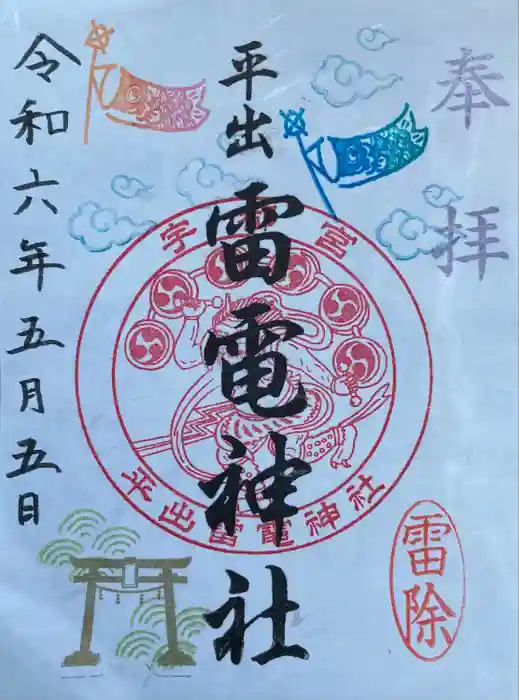 奉拝
平出雷電神社
令和六年五月五日
宇 宮
平出雷電神社
雷除